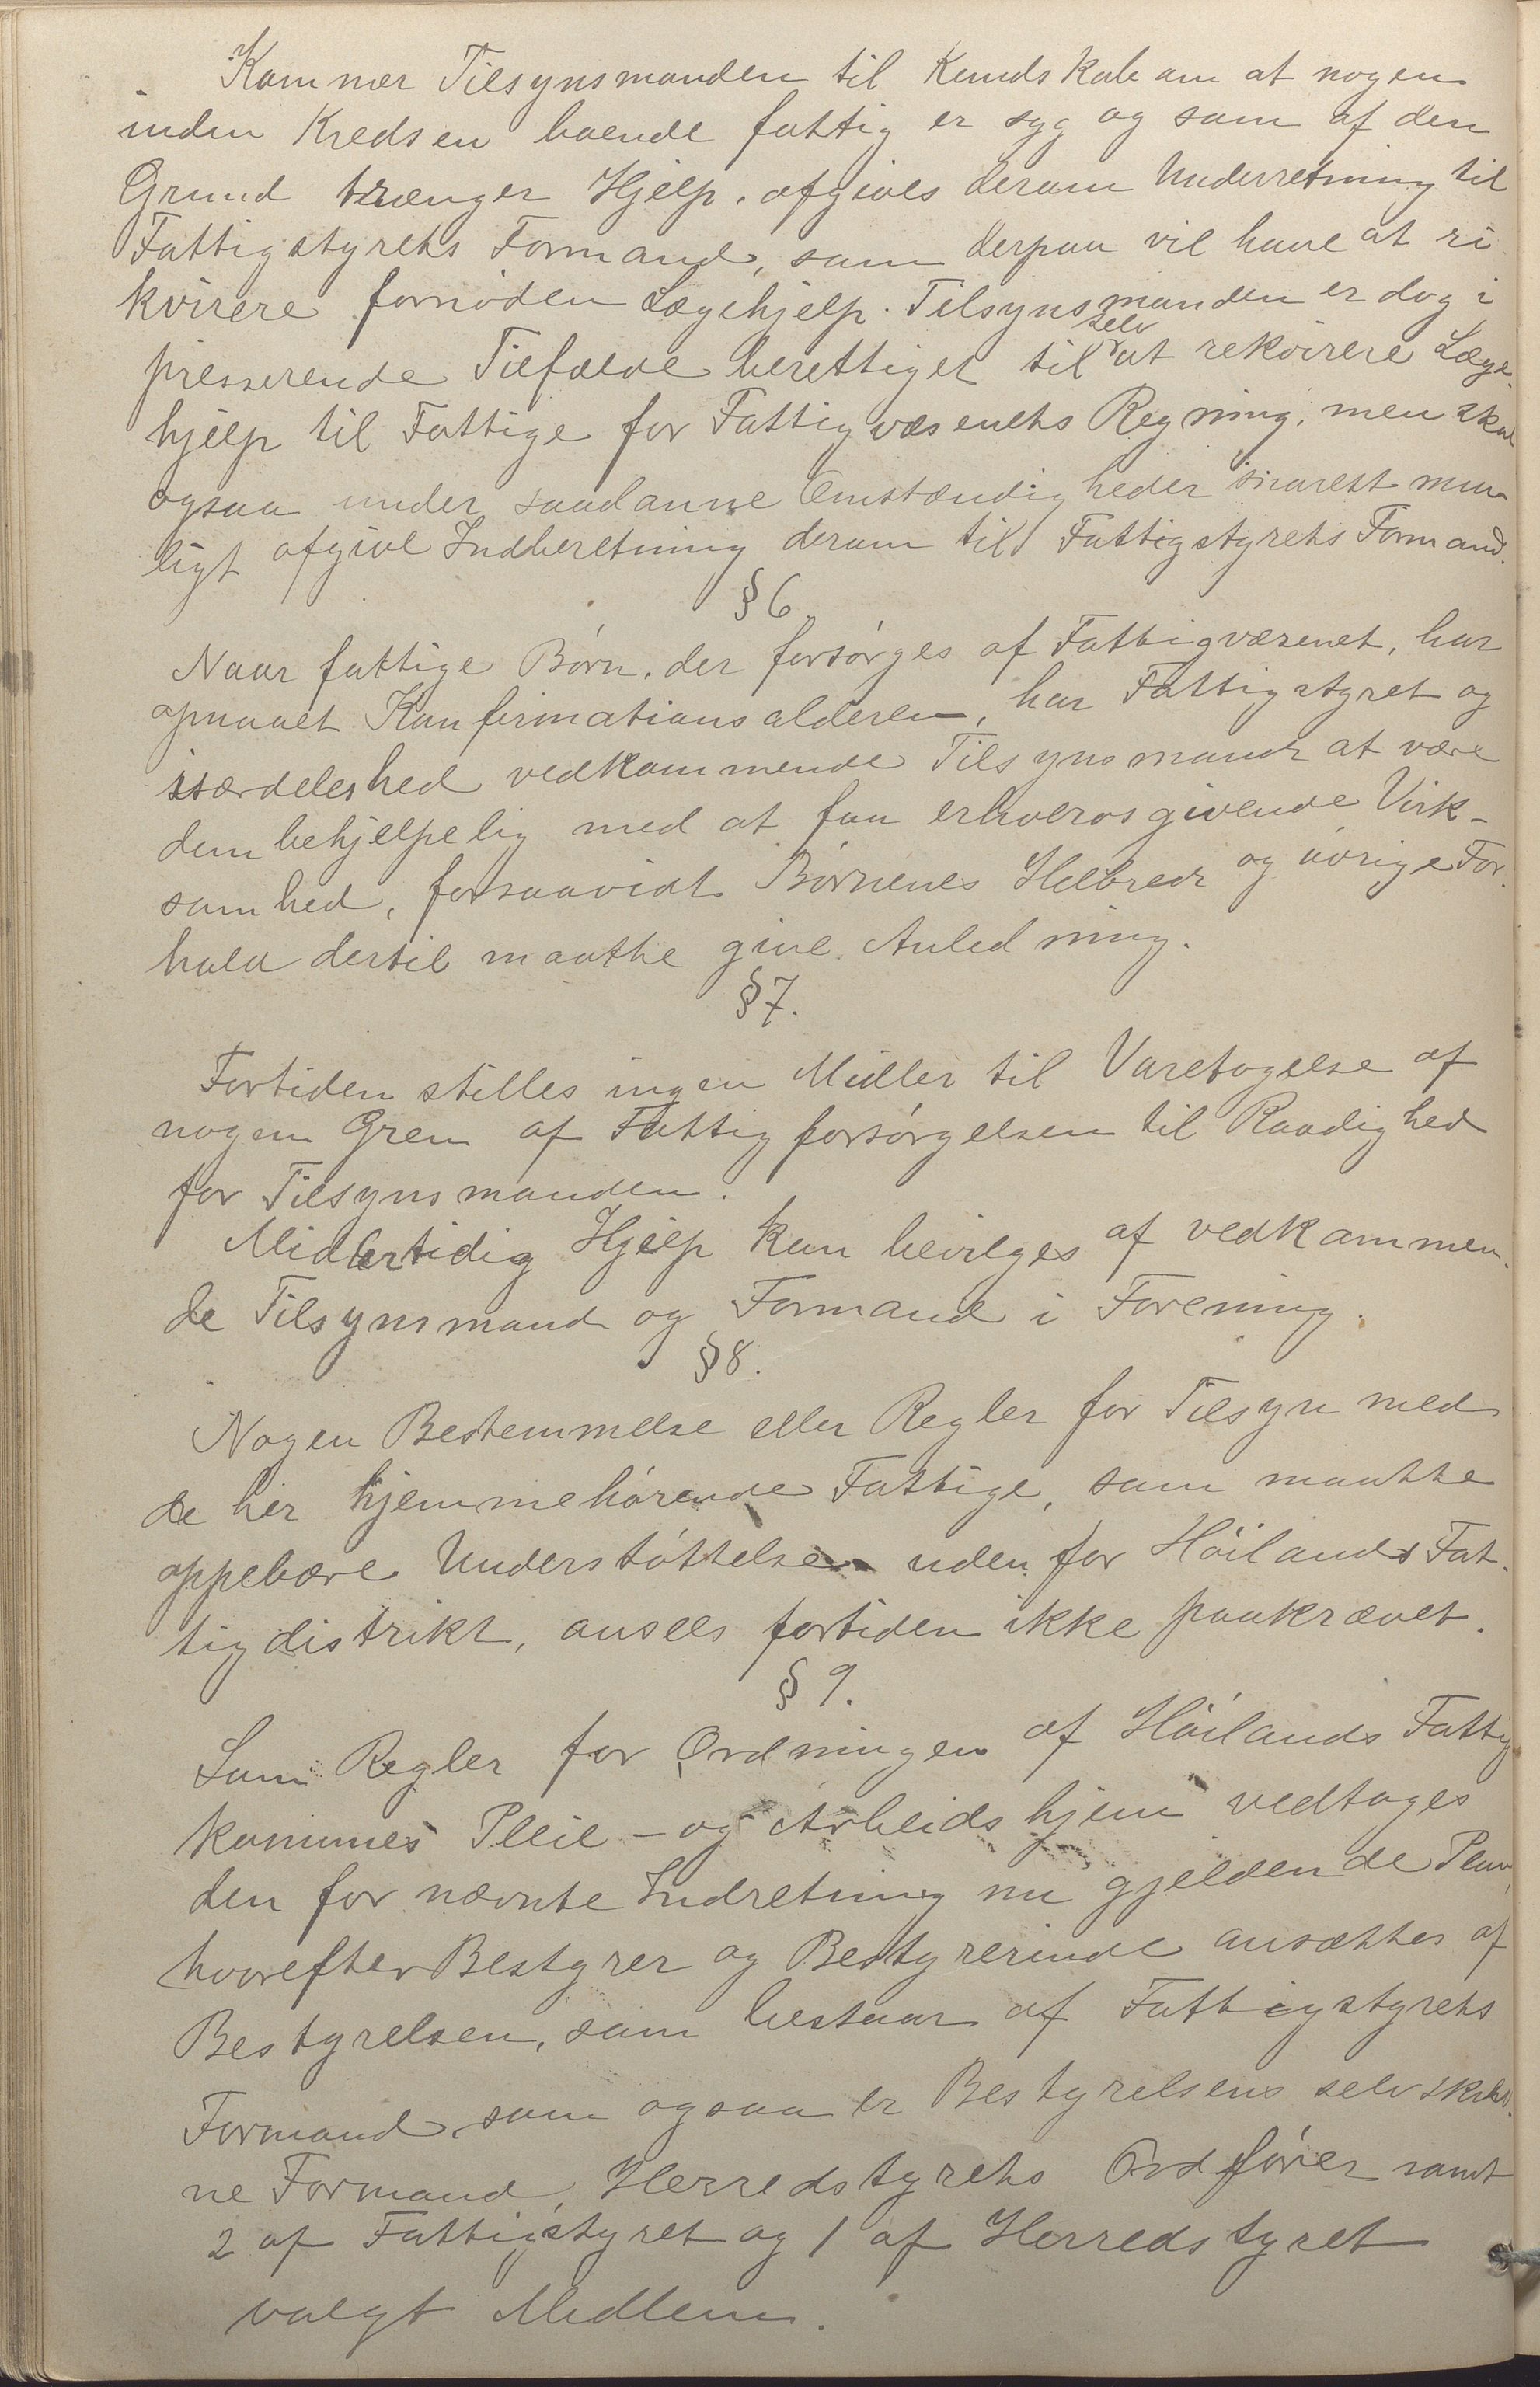 Kommer Tilsynsmanden til Kundskab om at nogen
inden Kredsen boende fattig er syg og som af den
Grund trænger Hjelp, afgives derom Underretning til
Fattigstyrets Formand, som derpaa vil have at ri
kvirere fornöden Lægehjelp. Tilsynsmanden er dog i
presserende Tilfælde berettiget til selv at rekvirere Læge-
hjelp til Fattige for Fattigvæsenets Regning, men skal
ogsaa under saadanne Omstændigheder snarest mu-
ligt afgive Indberetning derom til Fattigstyrets Formand.
§ 6.
Naar fattige Börn, der forsörges af Fattigvæsenet, har
opnaaet Konfirmationsalderen, har Fattigstyret og
isærdeleshed vedkommende Tilsynsmand at være
dem behjelpelig med at faa erhvervsgivende Virk-
somhed, forsaavidt Börnenes Helbred og övrige For-
hold dertil maatte give Anledning.
§ 7.
Fortiden stilles ingen Midler til Varetagelse af
nogen Gren af Fattigforsörgelsen til Raadighed
for Tilsynsmanden.
Midlertidig Hjelp kan bevilges af vedkommen-
de Tilsynsmand og Formand i Forening.
§ 8.
Nogen Bestemmelse eller Regler for Tilsyn med
de her hjemmehörende Fattige, som maatte
oppebære Understöttelse uden for Höilands Fat-
tigdistrikt, ansees fortiden ikke paakrævet.
§ 9.
Som Regler for Ordningen af Höilands Fattig
kommes Pleie- og Arbeidshjem vedtages
den for nævnte Indretning nu gjeldende Plan,
hvorefter Bestyrer og Bestyrerinde ansættes af
Bestyrelsen, som bestaar af Fattigstyrets
Formand, som ogsaa er Bestyrelsens selvskrev-
ne Formand, Herredstyrets Ordförer samt
2 af Fattigstyret og 1 af Herredstyret
valgt Medlem.